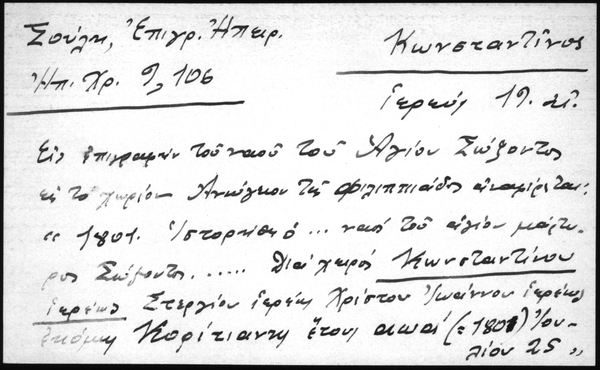 Σούλη, Ἐπιγρ. Ἠπειρ.
Κωνσταντῖνος
Ἠπ. Χρ. 9, 106
ἱερεύς 19. αἰ.
Εἰς ἐπιγραφὴν τοῦ ναοῦ τοῦ Ἁγίου Σώζοντος
εἰς τὸ χωρίον Ἀνώγειον τῆς Φιλιππιάδος ἀναφέρεται:
« 1801. Ἱστορήθη ὁ ... ναὸς τοῦ ἁγίου μάρτυ-
ρος Σώζοντος ..... διὰ χειρός Κωνσταντίνου
ἱερέως Στεργίου ἱερέως Χρίστου Ἰωάννου ἱερέως
Κορίτιανη ἔτους αωαʹ (=1801) Ἰου-
λίου 25 »